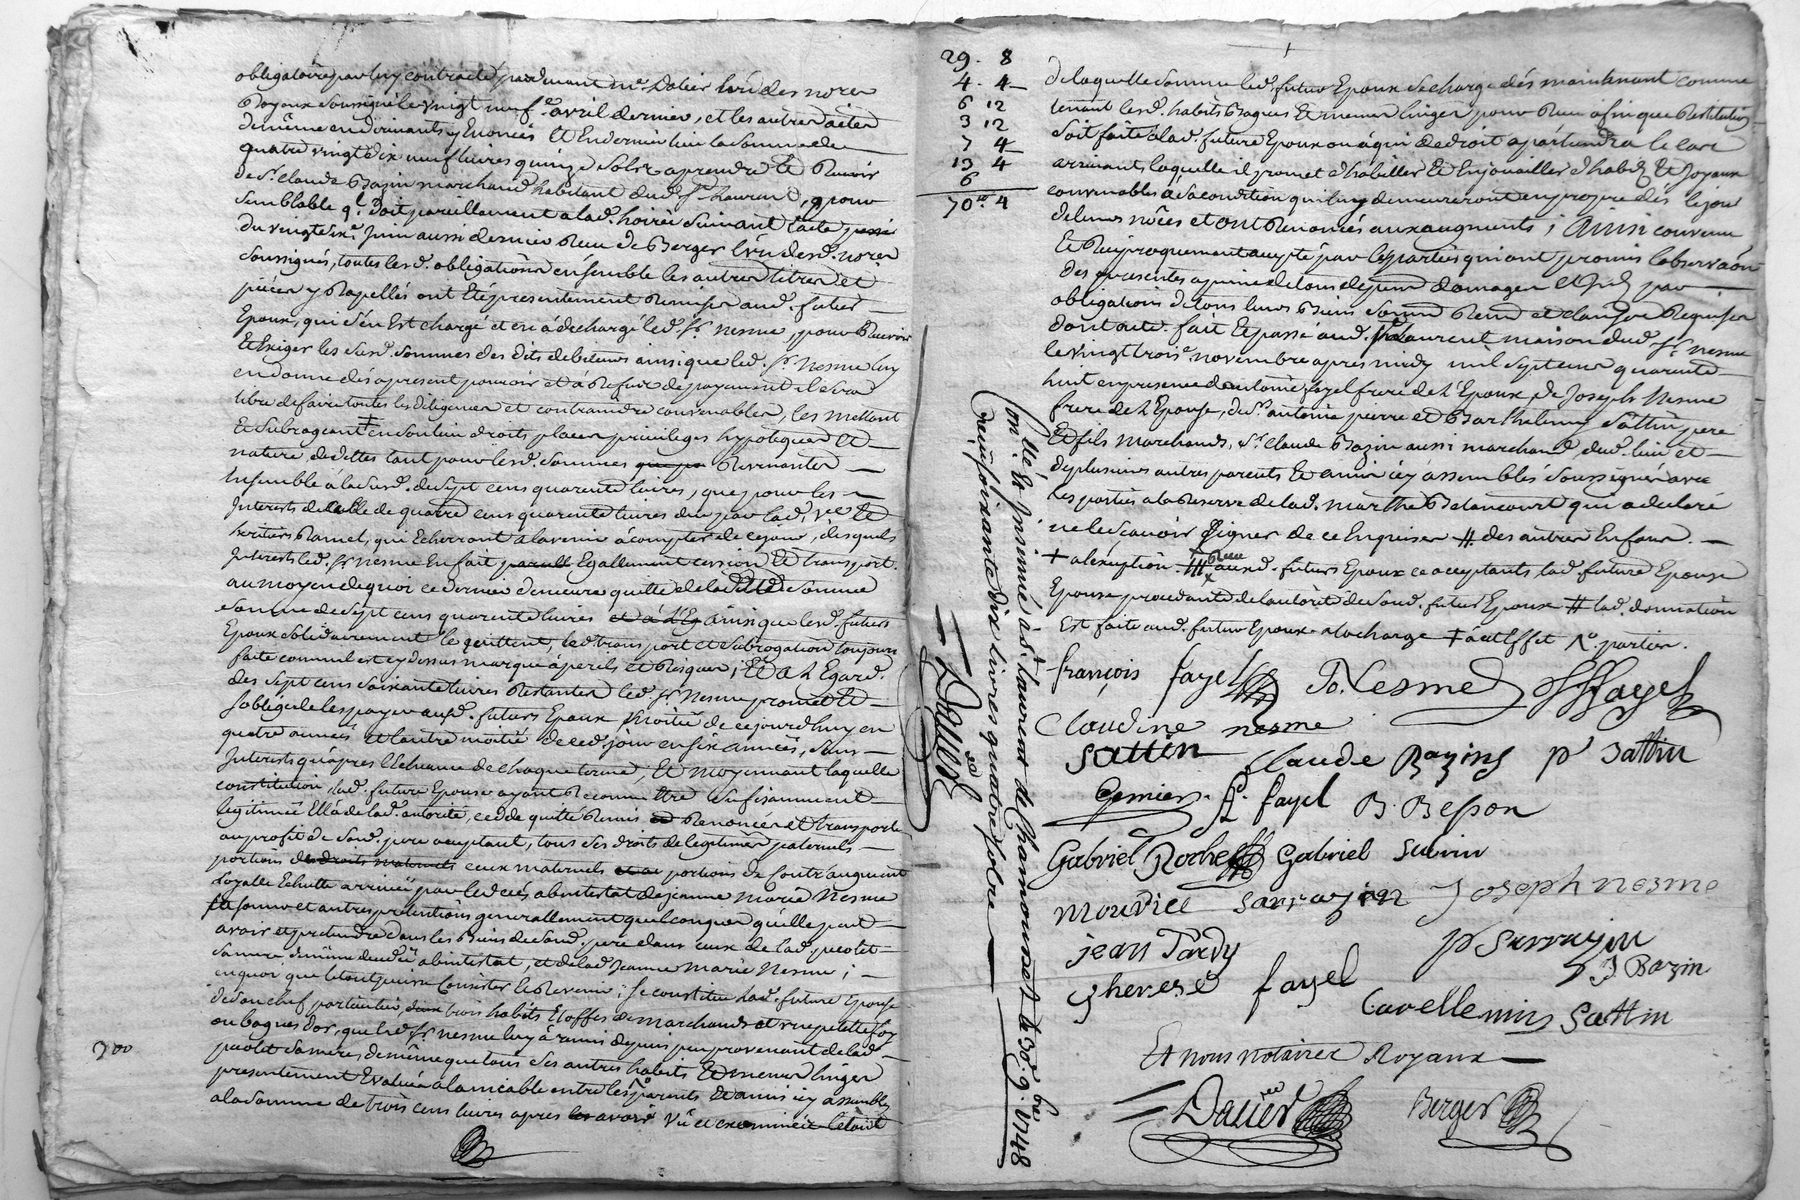 obligatoire par luy contracté pardevant me. Dalier l'un des nores
Royaux soussigné le vingt neufe. avril dernier, et les autres actes
de même en dorinants y Enoncés Et En dernier lieu la Somme de
quatre vingt dix neuf livres quinze sols a prendre Et Recevoir
de Sr. Claude Bazin marchand habitant dud. St. Laurent, q pour
Semblable ql. doit pareillement a lad. hoirie Suivant l'acte
du vingt Sixe. Juin aussi dernier Reçu de Berger l'un desd. nores
Soussignés, toutes lesd. obligations ensemble les autres titres et
pièces y Rapellés ont Eté presentement Remises aud. futur
Epoux, qui s'en Est chargé et en a dechargé led. Sr. nesme, pour Recevoir
Et Exiger les Susd. Sommes des dits debiteurs ainsi que led. Sr. Nesme luy
en donne dès apresent pouvoir et à Refus de payement il sera
libre de faire toutes les diligences et contrainte convenables, les mettant
Et Subrogeant en droits places privileges hypoteques Et
nature de dettes tant pour lesd. Sommes Revenantes
Ensemble à la Susd. de Sept cens quarente livres, que pour les
Interests de Celle de quatre cens quarente livres due par lad. Ve Et
heritiers Ramel, qui Echerront à l'avenir à compter de ce jour, desquels
Interests led. Sr. nesme En fait Egallement cession Et transport
au moyen de quoi ce dernier demeure quitte de lad. Somme
Somme de Sept cens quarente livres ainsi que lesd. futurs
Epoux Solidairement le quittent, lad. transport et Subrogation toujours
faite comme il est cy dessus marqué à perils et Risques; Et à L'Egard
des Sept cens Soixante livres Restantes led. Sr. Nesme promet Et
s'oblige de les payer ausd. futurs Epoux Moitié de ce jourd'huy en
quatre années et l'autre moitié de ced. jour en six années, Sans
Interests qu'apres l'Echeance de chaque terme; Et moyennant laquelle
constitution, lad. future Epouse ayant Reconnu Etre Suffisamment
legitimée Ellé de lad. autorité, cede quitte Remis Renoncé et transporté
au profit de Sond. pere acceptant, tous Ses droits de legitimes paternels
portions ceux maternels portions de Contraugment
Loyalle Echutte arrivée par le deces abintestat de jeanne Marie Nesme
Sa Soeur et autres pretentions generallement quelconques qu'elle peut
avoir et pretendre dans les Biens de Sond. pere dans ceux de lad. pecolet
Sa mere, de même decedée abintestat, et de lad. Jeanne Marie Nesme;
en quoi que le tout puisse Consister Et Revenir; Se constitue lad. future Epouse
de son chef particulier, trois habits Etoffes de Marchands et une petite Foy
ou bagues d'or, que led. Sr. nesme luy à remis depuis peu provenant de lad.
pecolet Sa mere, de même que tous Ses autres habits Et menus linges
presentement Evalués a l'amiable entre les parents Et amis icy assemblés
a la Somme de trois cens livres apres avoir Vû et examiné le tout
300
29. 8
4. 4
6 12
3 12
7 4
13 4
6
70tt. 4
Con[tro]llé Et Insinué à St. Laurent de Chamousset le 30e. 9bre 1748
Reçu soixante dix livres quatre solz
= Dauier
de laquelle Somme led. futur Epoux Se charge dès maintenant comme
tenant lesd. habits Bagues Et menus linges pour Reçu afin que Restitution
Soit faite à lad. future Epouse ou à qui de droit apartiendra le cas
arrivant, laquelle il promet d'habiller Et Enjouailler d'habits Et Joyaux
convenables à Sa condition qui luy demeureront en propre dès le jour
de leurs nôces et ont Renoncés aux augments; Ainsi convenu
Et Reciproquement accepté par les parties qui ont promis l'observaon
des presentes a peine de tous depens domages Et Intts par
obligations de tous leurs Biens Soumn Renon et clauses Requises
Dont acte. fait Et passé aud. St. Laurent maison dud. Sr. nesme
le vingt troise. novembre apres midy mil Sept cens quarente
huit en presence d'antoine fayel frere de l'Epoux, de Joseph Nesme
frere de l'Epouse, de Sr. antoine pierre et Barthelemy Sattin pere
Et fils Marchands, Sr. Claude Bazin aussi marchand, dud. lieu et
de plusieurs autres parents Et amis icy assemblés Soussignés avec
les parties a la Reserve de lad. marthe Betancourt qui a declaré
ne le Scavoir Signer de ce Enquise # des autres Enfans.
+ a l'exeption ausd. futurs Epoux ce acceptants, lad. future Epouse
Epouse procedante de l'autorité de Sond. futur Epoux # lad. donnation
Est faite aud. futur Epoux a la charge + à cet Effet /o. parties.
françois fayel Jo. Nesme ff fayel
Claudine nesme
Sattin Claude Bazins p' Sattin
Gernier. fayel B. Besson
Gabriel Roche Gabriel Suivin
Mourice Sarrazien Joseph nesme
jean Tardy p Sarrazin
J Bazin
therese fayel
Cavellemin Sattin
Et nous notaires Royaux
= Dauier Berger